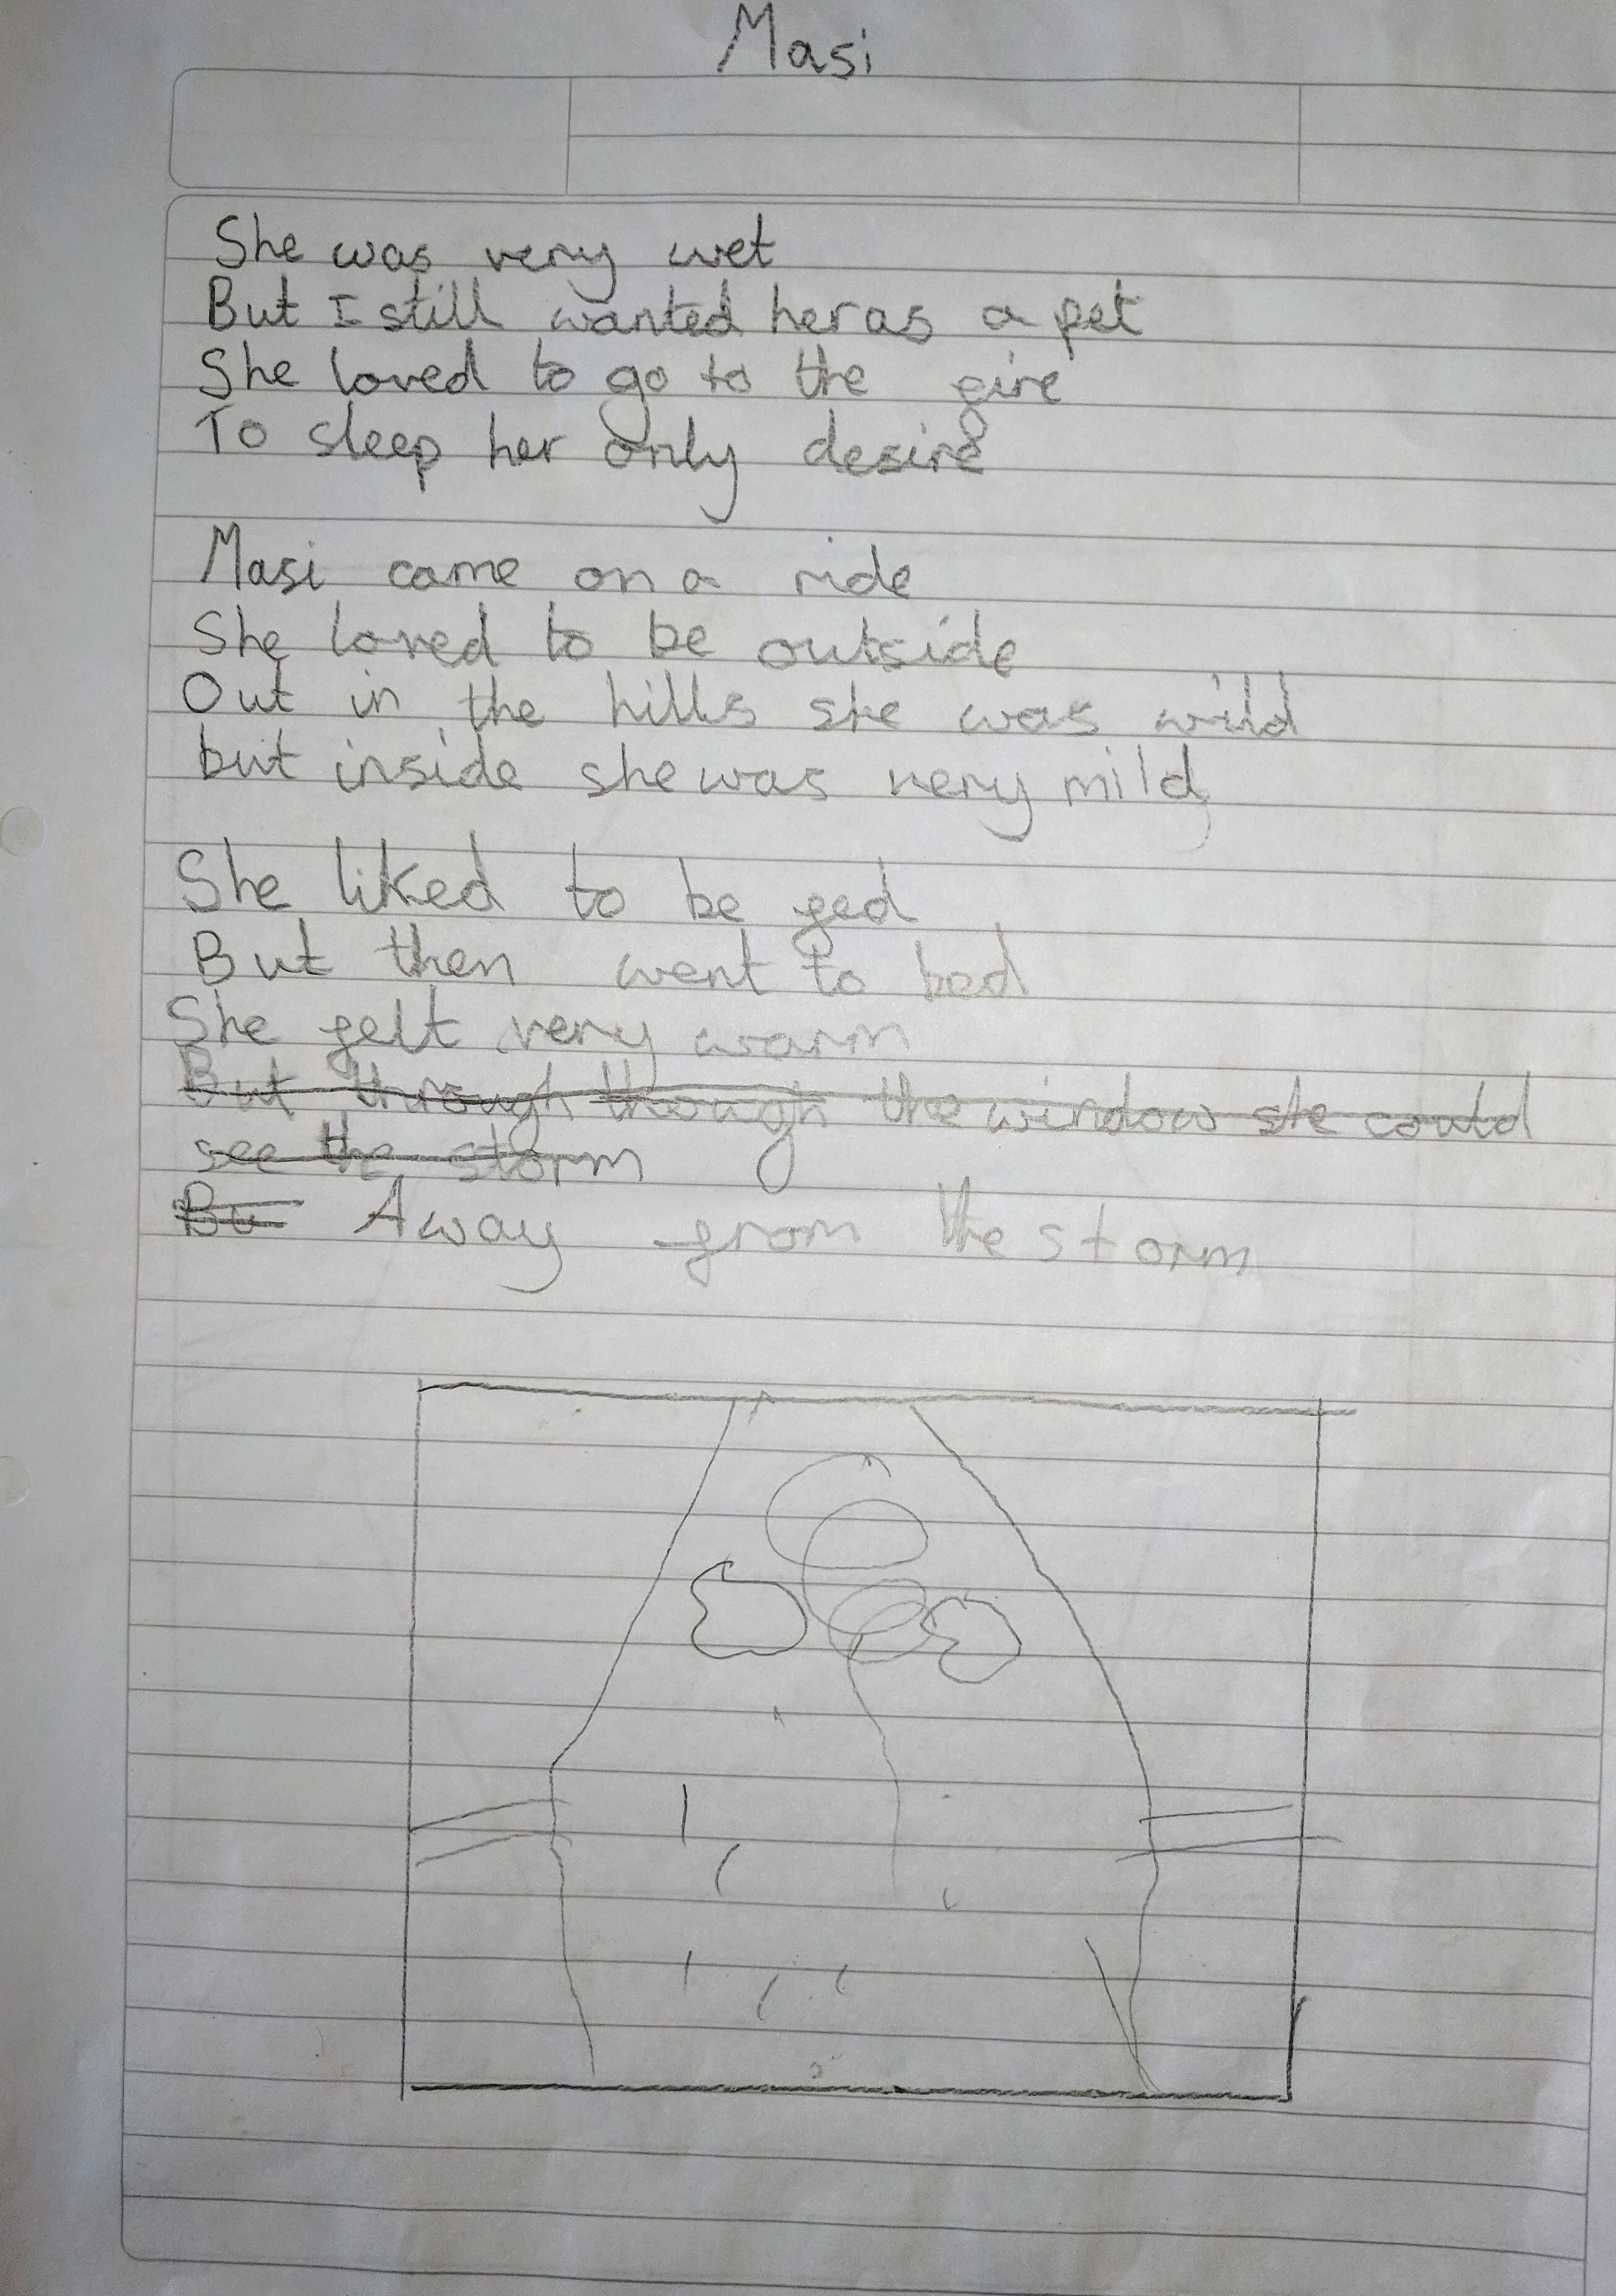 Masi
She was very wet
But I still wanted her as a pet
She loved to go to the fire
To sleep her only desire
Masi came on a ride
She loved to be outside
Out in the hills she was wild
but inside she was very mild
She liked to be fed
But then went to bed
She felt very warm
But through though the window she could
see the storm
Bu Away from the storm